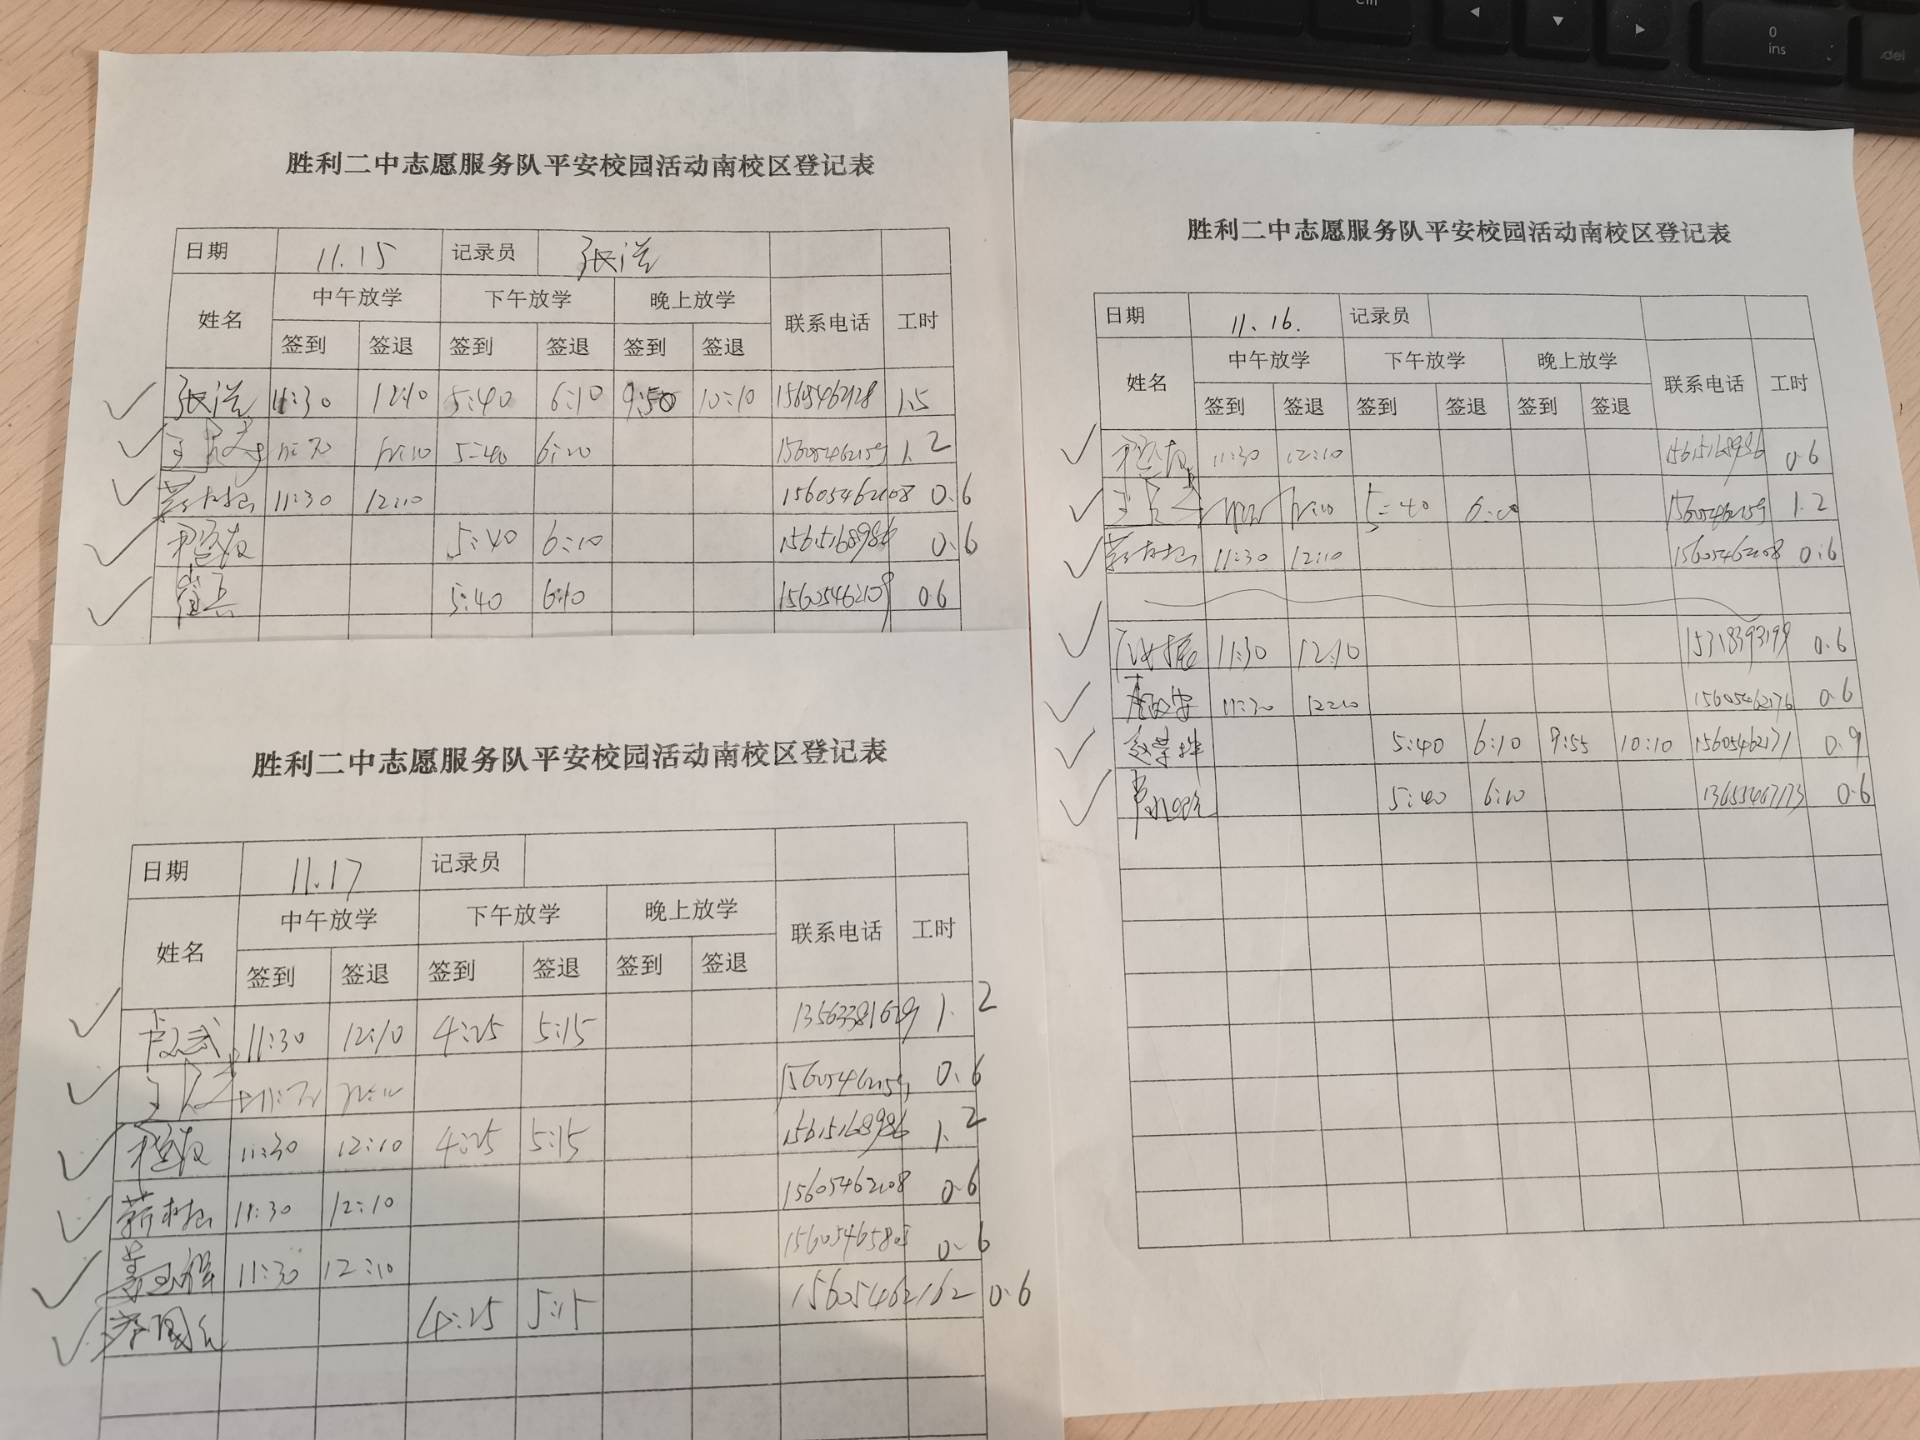 胜利二中志愿服务队平安校园活动南校区登记表
日期 11.15 记录员 张洋
姓名 中午放学 下午放学 晚上放学 联系电话 工时
签到 签退 签到 签退 签到 签退
张洋 11:30 12:10 5:40 6:10 9:50 10:10 1.5
5:40 6:10 15605462159 1.2
11:30 12:10 15605462108 0.6
5:40 6:10 15615168986 0.6
崔兵 5:40 6:10 15605462109 0.6
胜利二中志愿服务队平安校园活动南校区登记表
日期 11.16. 记录员
姓名 中午放学 下午放学 晚上放学 联系电话 工时
签到 签退 签到 签退 签到 签退
11:30 12:10 15615168986 0.6
5:40 15605462159 1.2
11:30 12:10 15605462108 0.6
11:30 12:10 0.6
11:30 12:10 15605462176 0.6
5:40 6:10 9:55 10:10 15605462171 0.9
5:40 6:10 0.6
胜利二中志愿服务队平安校园活动南校区登记表
日期 11.17 记录员
姓名 中午放学 下午放学 晚上放学 联系电话 工时
签到 签退 签到 签退 签到 签退
11:30 12:10 4:25 5:15 13563381629 1.2
15605462159 0.6
11:30 12:10 4:25 5:15 15615168986 1.2
11:30 12:10 15605462108 0.6
11:30 12:10 0.6
4:25 5:15 15605462162 0.6